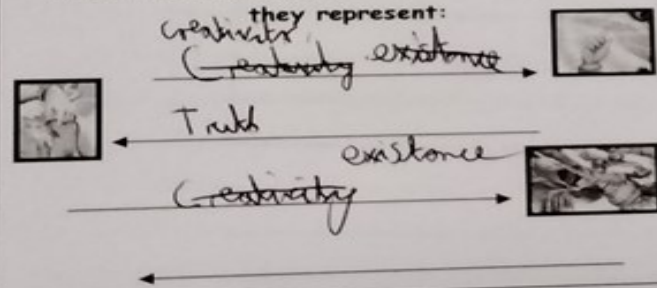 they represent:
creativity
Creativity existance
Truth
existance
Creativity